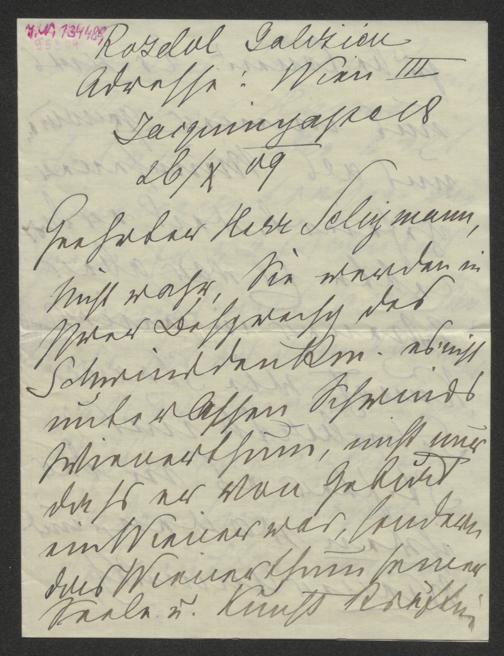 I.N. 134489
Rozdol Galizien
Adresse: Wien III
Jacquingasse 18
26/X 09
Geehrter Herr Seligmann,
Nicht wahr, Sie werden in
Ihrer Besprechg des
Schwinddenkm. es nicht
unterlassen Schwinds
Wienerthum, nicht nur
dass er von Geburt
ein Wiener war, sondern
das Wienerthum seiner
Seele u. Kunst kräftig